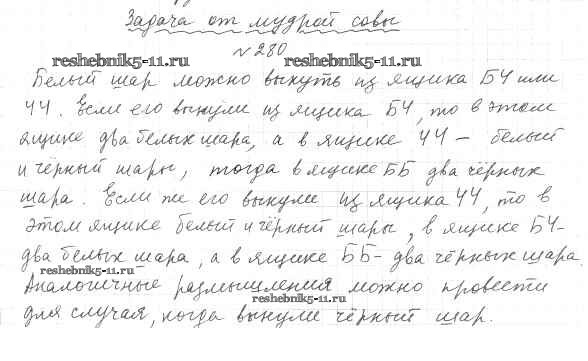 Задача от мудрой совы
№280
reshebnik5-11.ru reshebnik5-11.ru
Белый шар можно вынуть из ящика БЧ или
ЧЧ. Если его вынули из ящика БЧ, то в этом
ящике два белых шара, а в ящике ЧЧ – белый
и чёрный шары, тогда в ящике ББ два чёрных
шара. Если же его вынули из ящика ЧЧ, то в
этом ящике белый и чёрный шары, в ящике БЧ-
два белых шара, а в ящике ББ- два чёрных шара.
reshebnik5-11.ru
Аналогичные размышления можно провести
reshebnik5-11.ru
для случая, когда вынули чёрный шар.